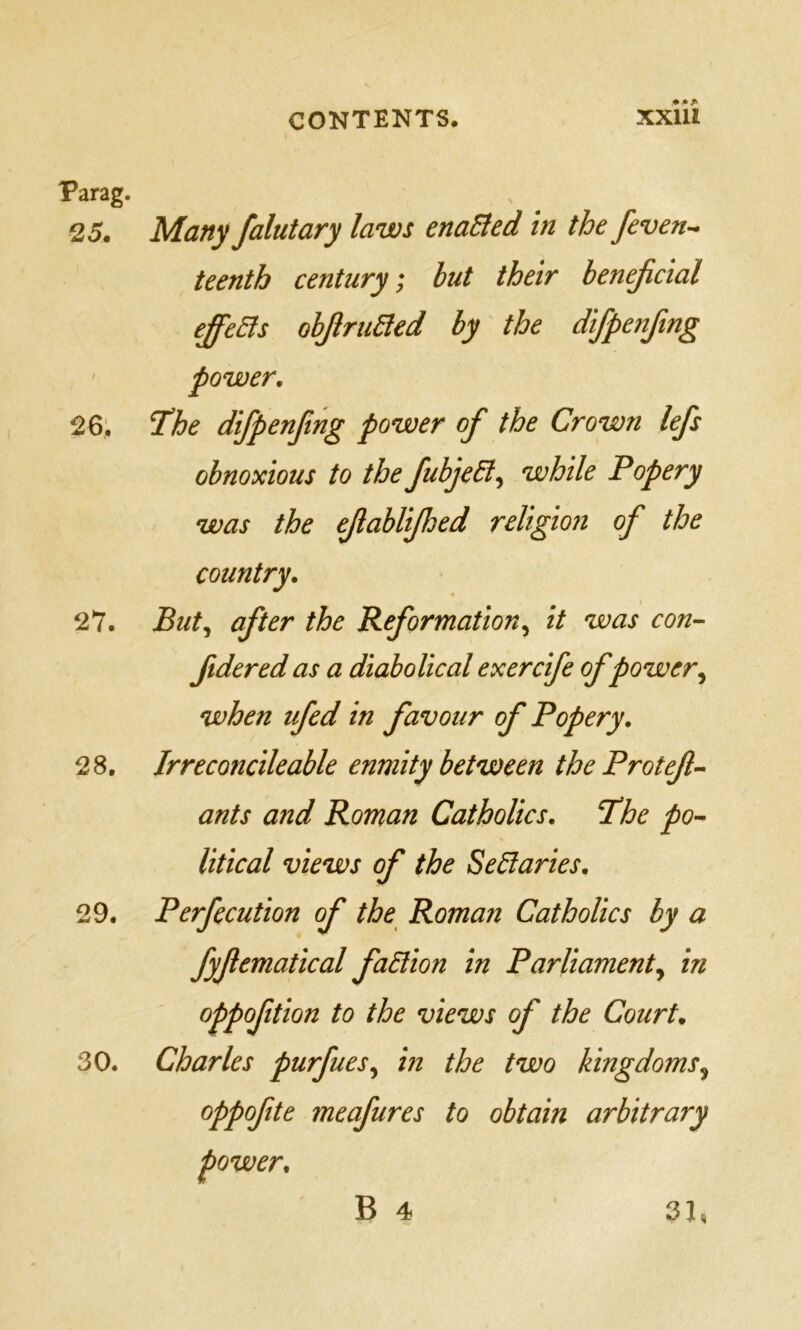 CONTENTS. xxiii
Parag.
25. Many ſalutary laws enacted in the ſeven-
teenth century; but their beneficial
effects obſtructed by the diſpenſing
power.
26. The diſpenſing power of the Crown leſs
obnoxious to the ſubject, while Popery
was the eſtabliſhed religion of the
country.
27. But, after the Reformation, it was con-
ſidered as a diabolical exerciſe of power,
when uſed in favour of Popery.
28. Irreconcileable enmity between the Proteſt-
ants and Roman Catholics. The po-
litical views of the Sectaries.
29. Perſecution of the Roman Catholics by a
ſyſtematical faction in Parliament, in
oppoſition to the views of the Court.
30. Charles purſues, in the two kingdoms,
oppoſite meaſures to obtain arbitrary
power.
B 4 31.